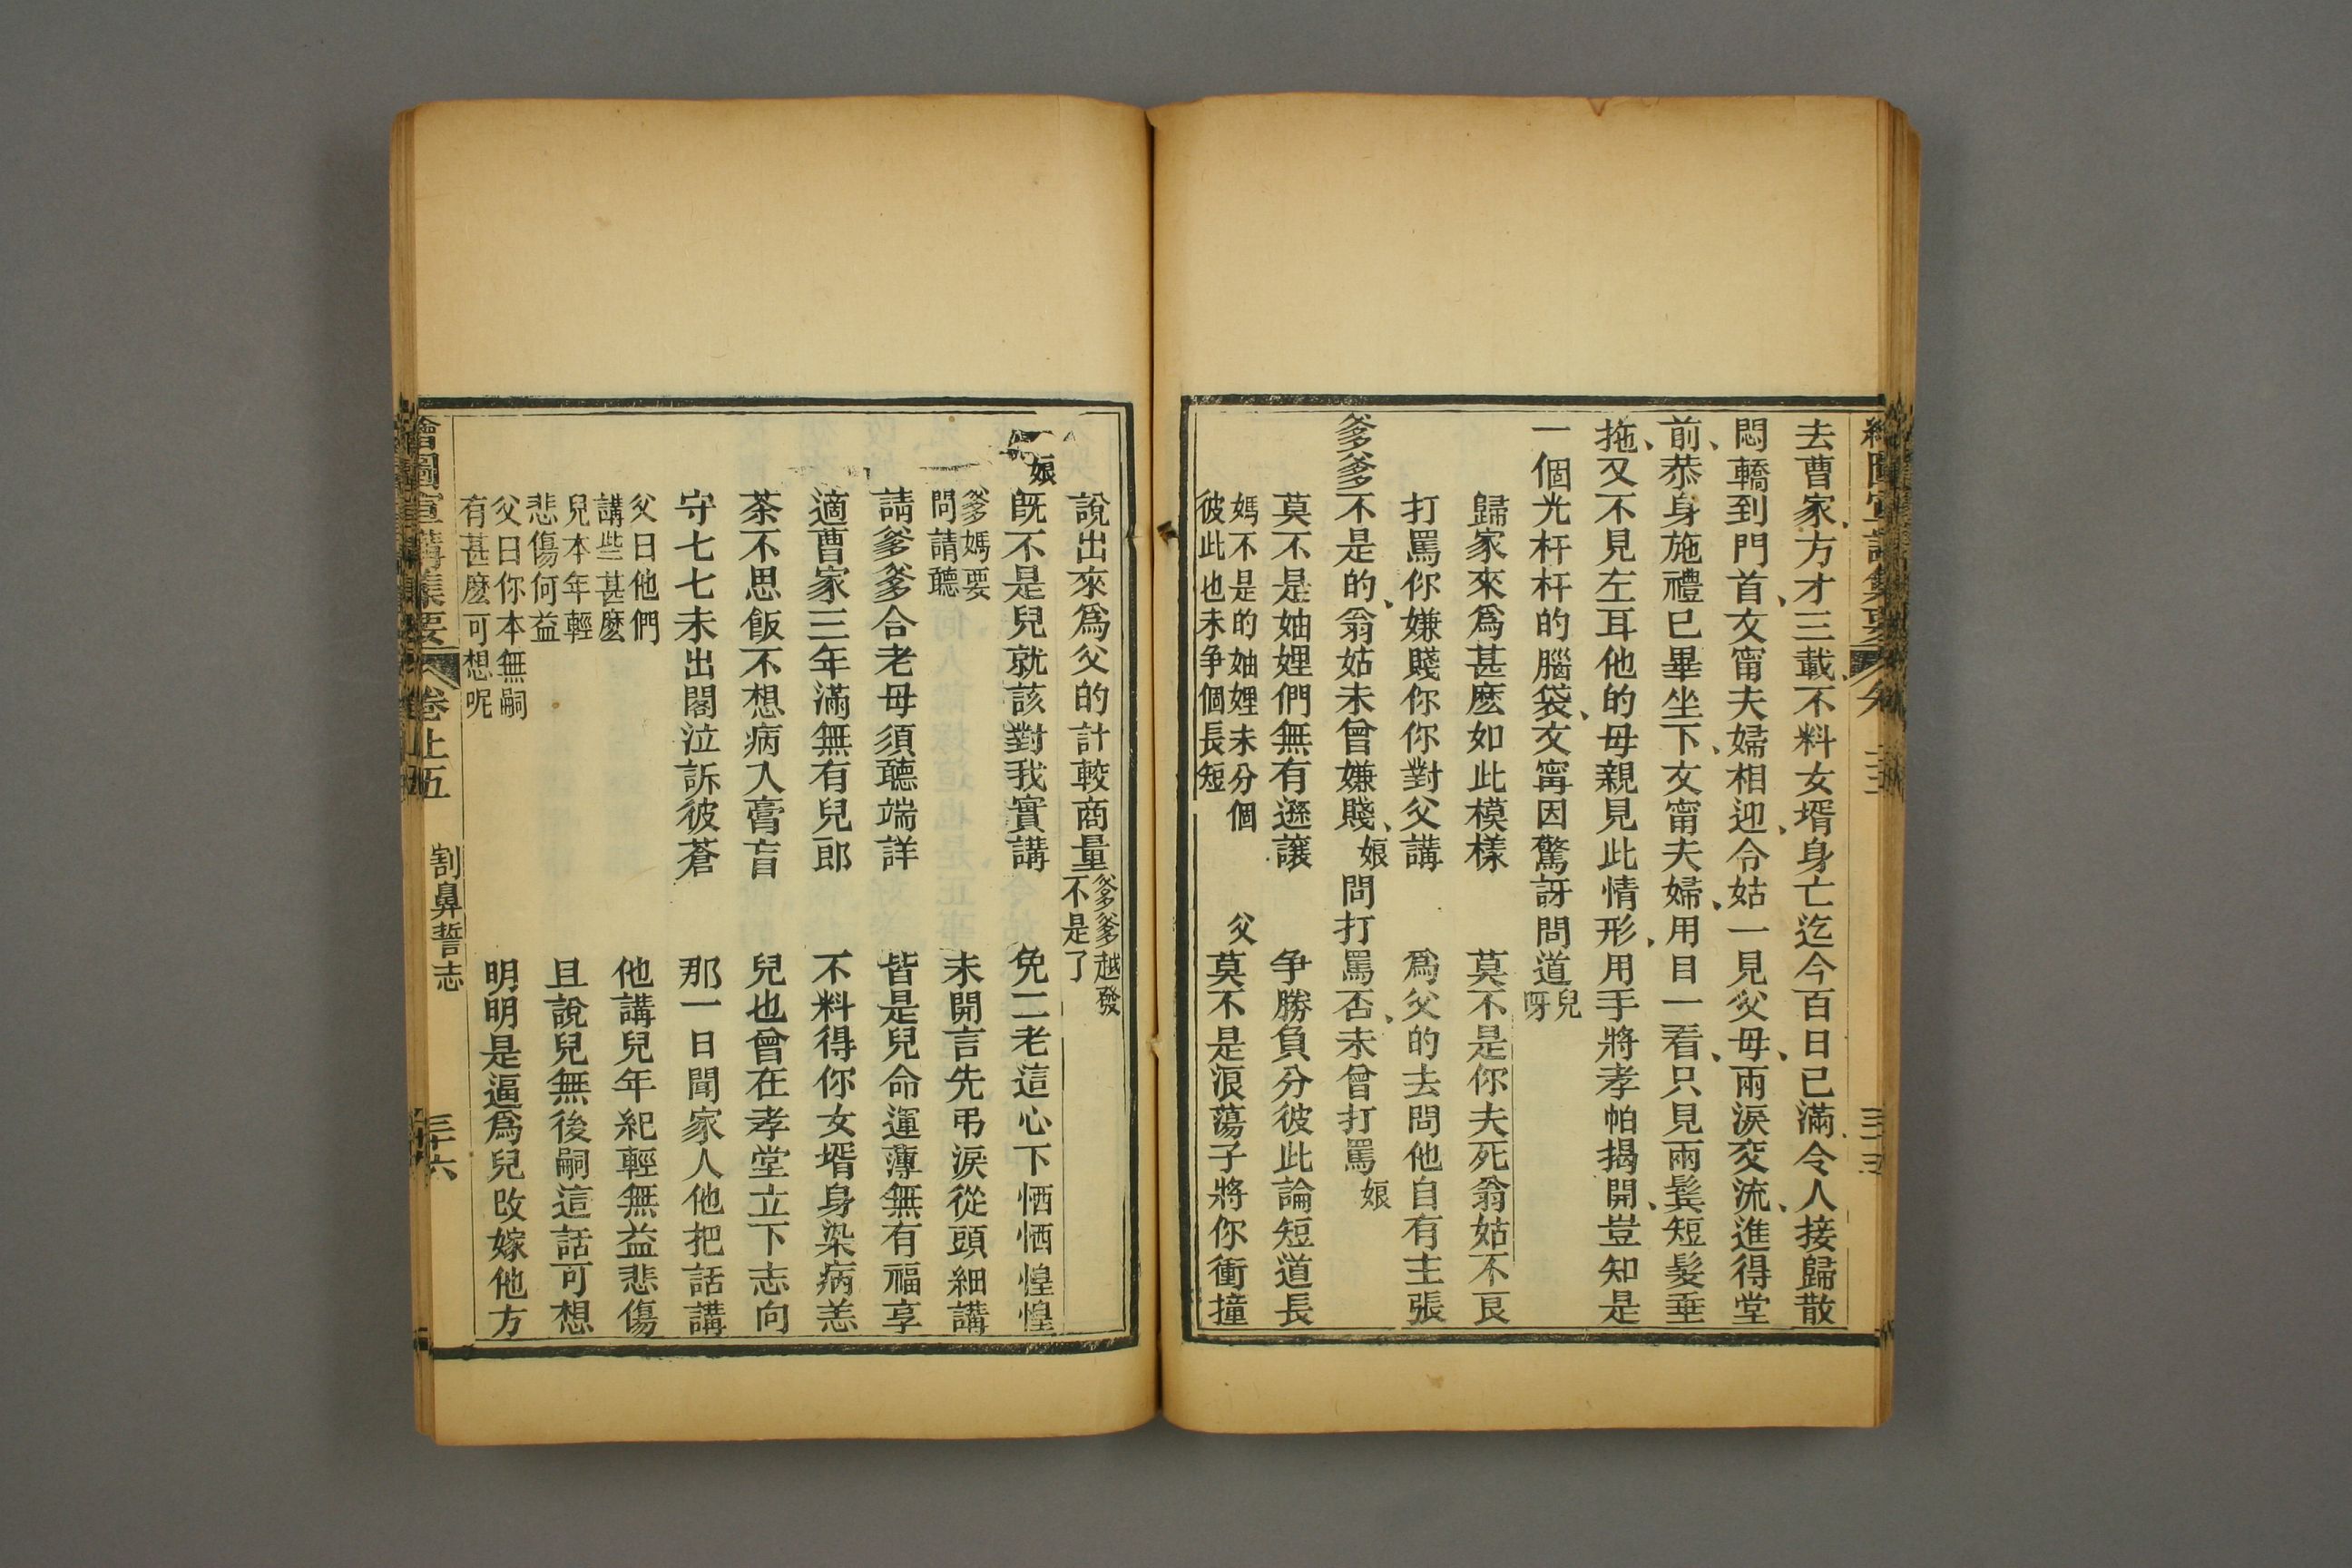 去曹家方才三載不料女壻身亡迄今百日已滿令人接歸散
悶轎到門首文甯夫婦相迎令姑一見父母兩淚交流進得堂
前恭身施禮已畢坐下文甯夫婦用目一看只見兩鬂短髮垂
拖又不見左耳他的母親見此情形用手將孝帕揭開豈知是
一個光杆杆的腦袋文甯因驚訝問道兒呀
歸家來爲甚麽如此模樣　莫不是你夫死翁姑不良
打罵你嫌賤你你對父講　爲父的去問他自有主張
爹爹不是的翁姑未曾嫌賤娘問打罵否未曾打罵娘
莫不是妯娌們無有遜讓　争勝負分彼此論短道長
媽不是的妯娌未分個
彼此也未争個長短
父莫不是浪蕩子將你衝撞
說出來爲父的計較商量爹爹越發不是了
娘旣不是兒就該對我實講　免二老這心下恓恓惶惶
爹媽要
問請聽
未開言先弔淚從頭細講
請爹爹合老母須聽端詳　皆是兒命運薄無有福享
適曹家三年滿無有兒郎　不料得你女壻身染病恙
茶不思飯不想病入膏肓　兒也曾在孝堂立下志向
守七七未出閣泣訴彼蒼　那一日聞家人他把話講
父曰他們
講些甚麽
他講兒年紀輕無益悲傷
兒本年輕
悲傷何益
且說兒無後嗣這話可想
父曰你本無嗣
有甚麽可想呢
明明是逼爲兒改嫁他方
繪圖宣講集要　卷上五　割鼻誓志　三十六